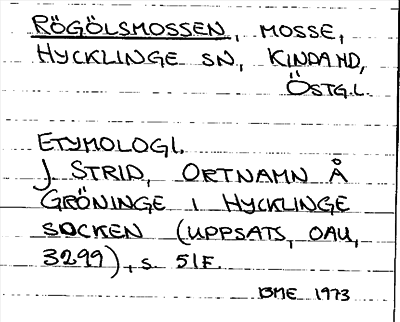 RÖGÖLSMOSSEN, MOSSE,
HYCKLINGE SN, KINDA HD,
ÖSTG.L.
ETYMOLOGI.
J STRID, ORTNAMN Å
GRÖNINGE I HYCKLINGE
SOCKEN (UPPSATS, OAU,
3299), s 51F.
BME 1973